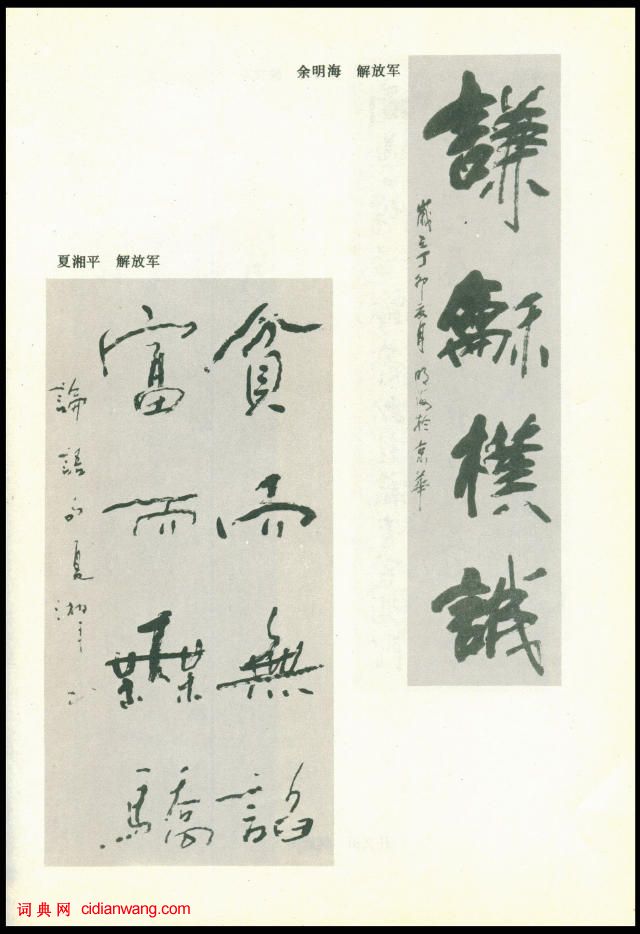 余明海 解放军
謙龢樸誠
歲在丁卯月明海於京華
夏湘平 解放军
貧而無諂
富而無驕
論語句夏湘平
词典网 cidianwang.com